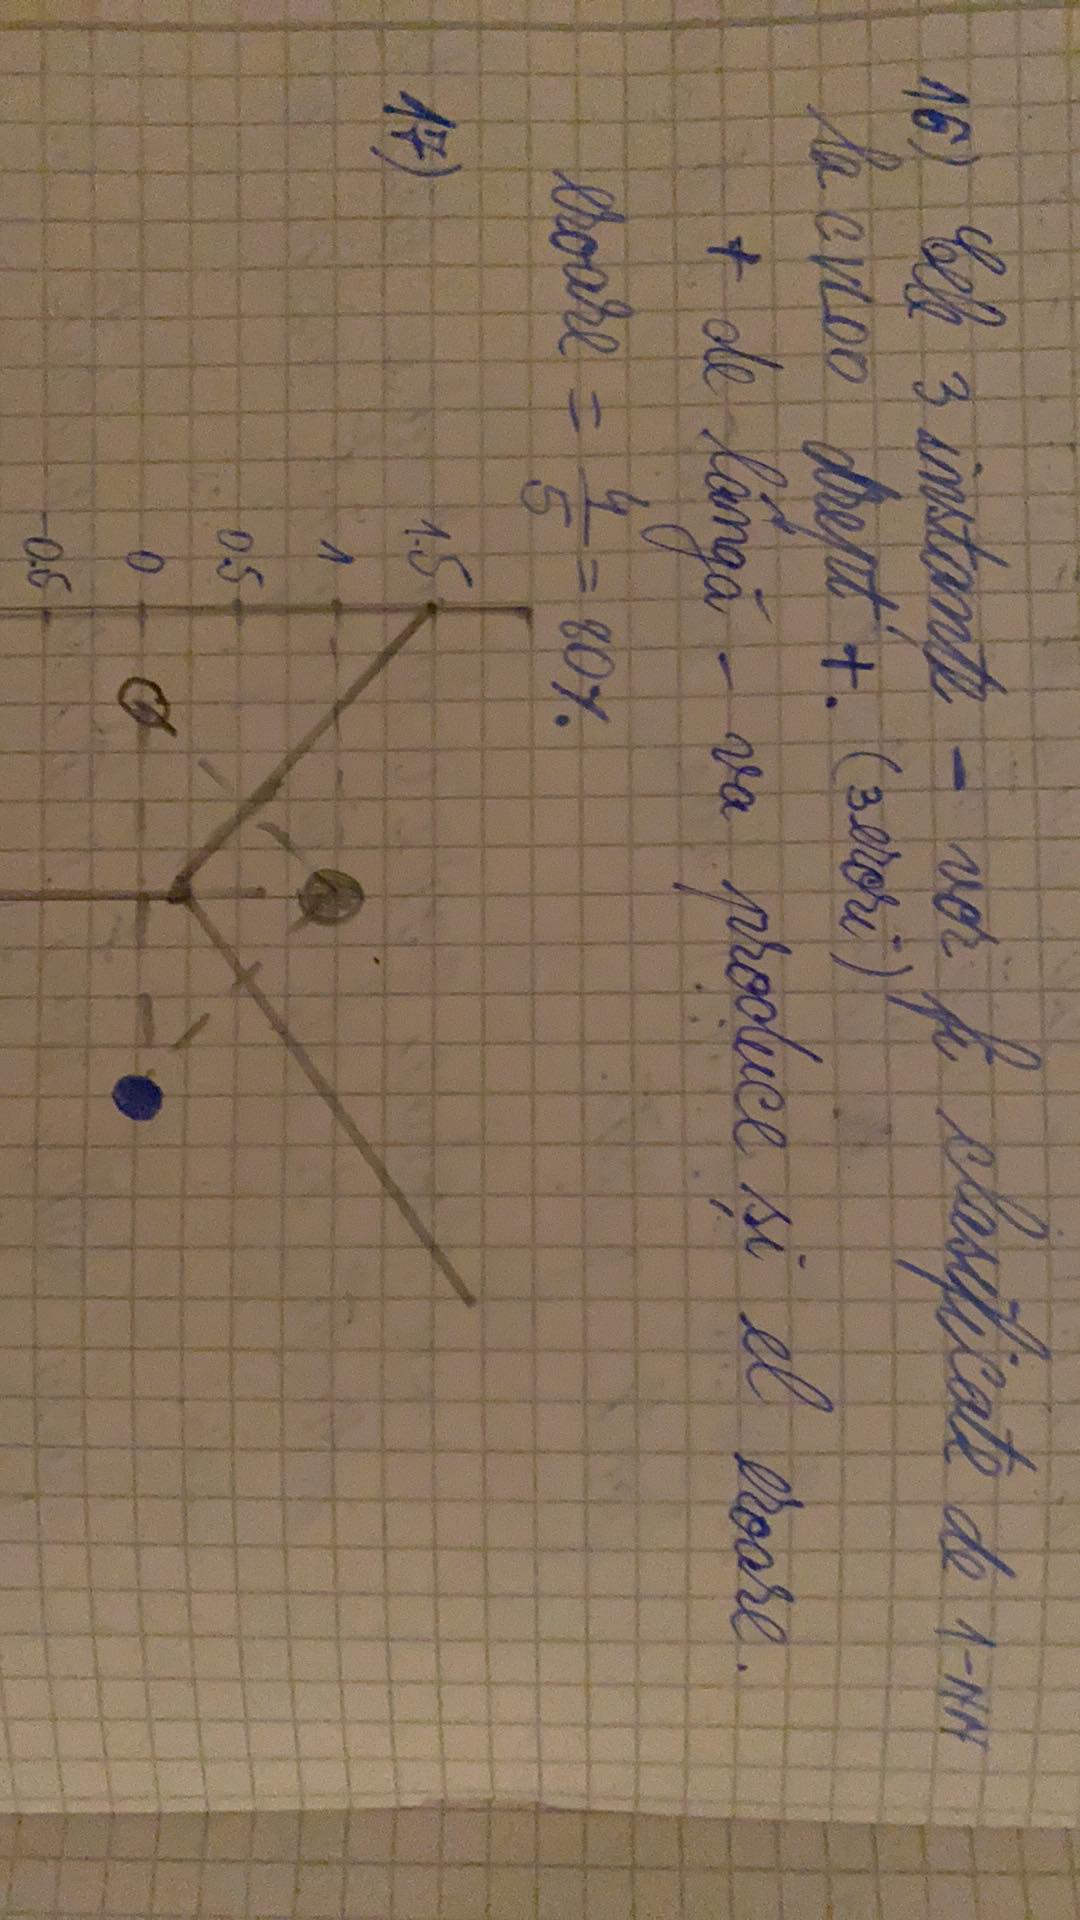 16) Cele 3 instanțe - vor fi clasificate de 1-NN
la CVLOO drept +. (3 erori)
+ de lângă - va produce și el eroare.
eroare = 4/5 = 80%.
17)
1.5
1
0.5
0
-0.5